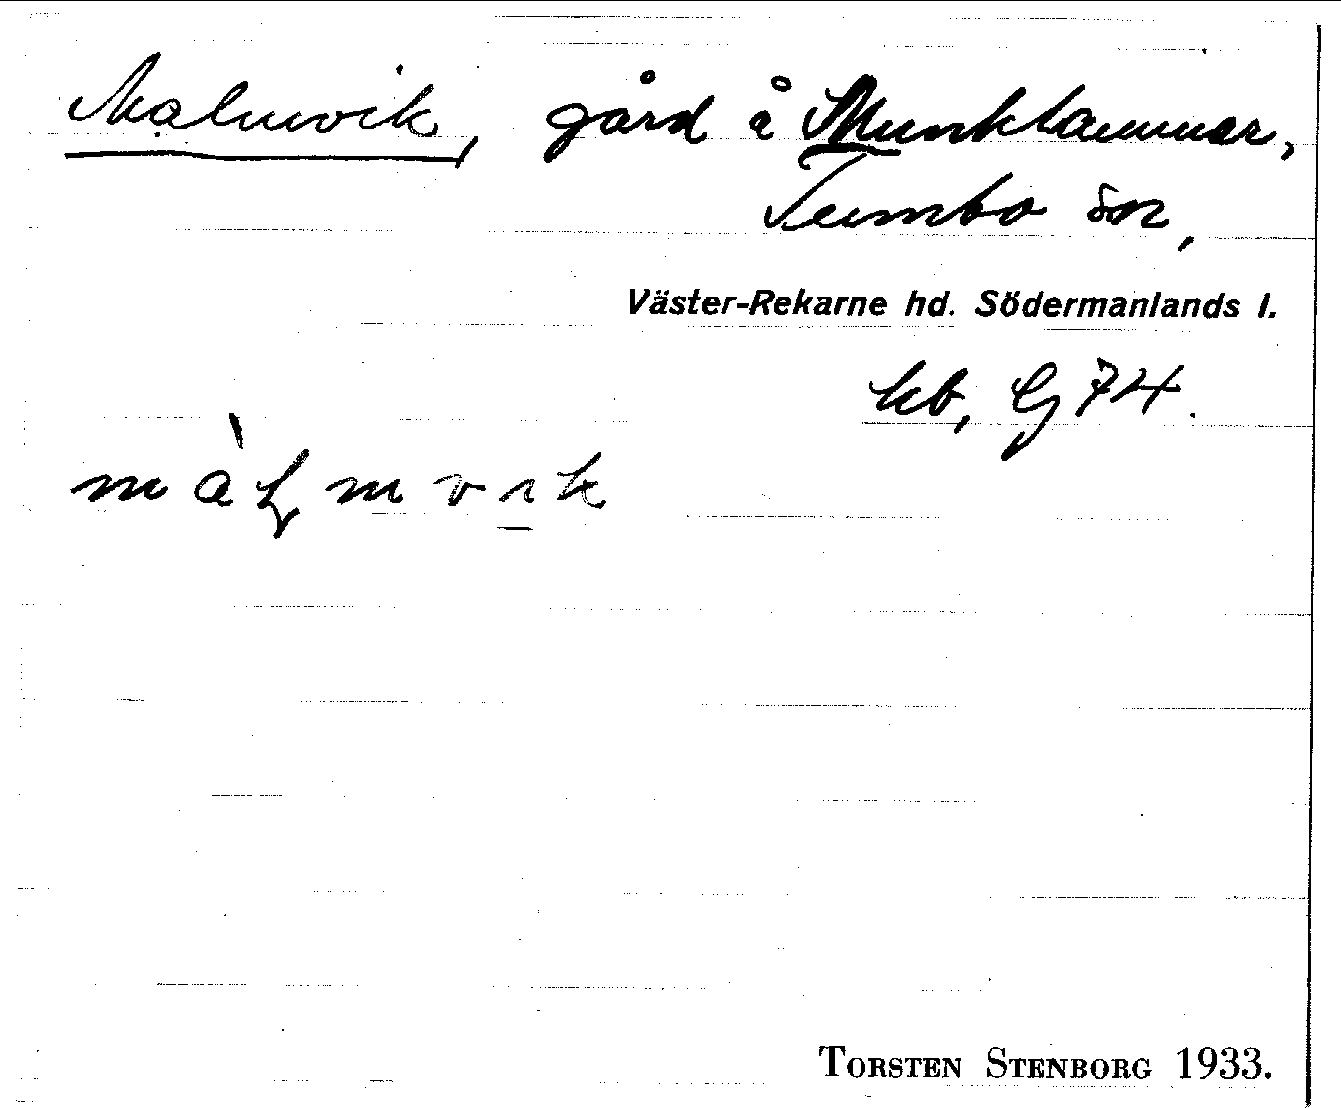 Malmvik, gård å Munktammar,
Tumbo sn,
Väster-Rekarne hd. Södermanlands l.
kb, G 74.
màlmvik
TORSTEN STENBORG 1933.